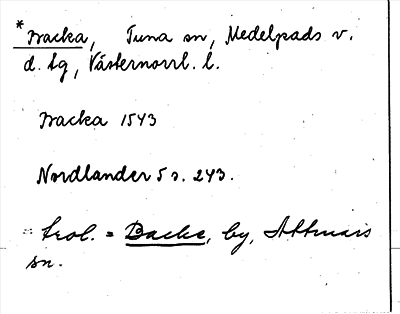 *Backa, Tuna sn, Medelpads v.
d. tg, Västernorrl. l.
Backa 1543
Nordlander 5 s. 243.
Trol. = Backe, by, Attmars
sn.